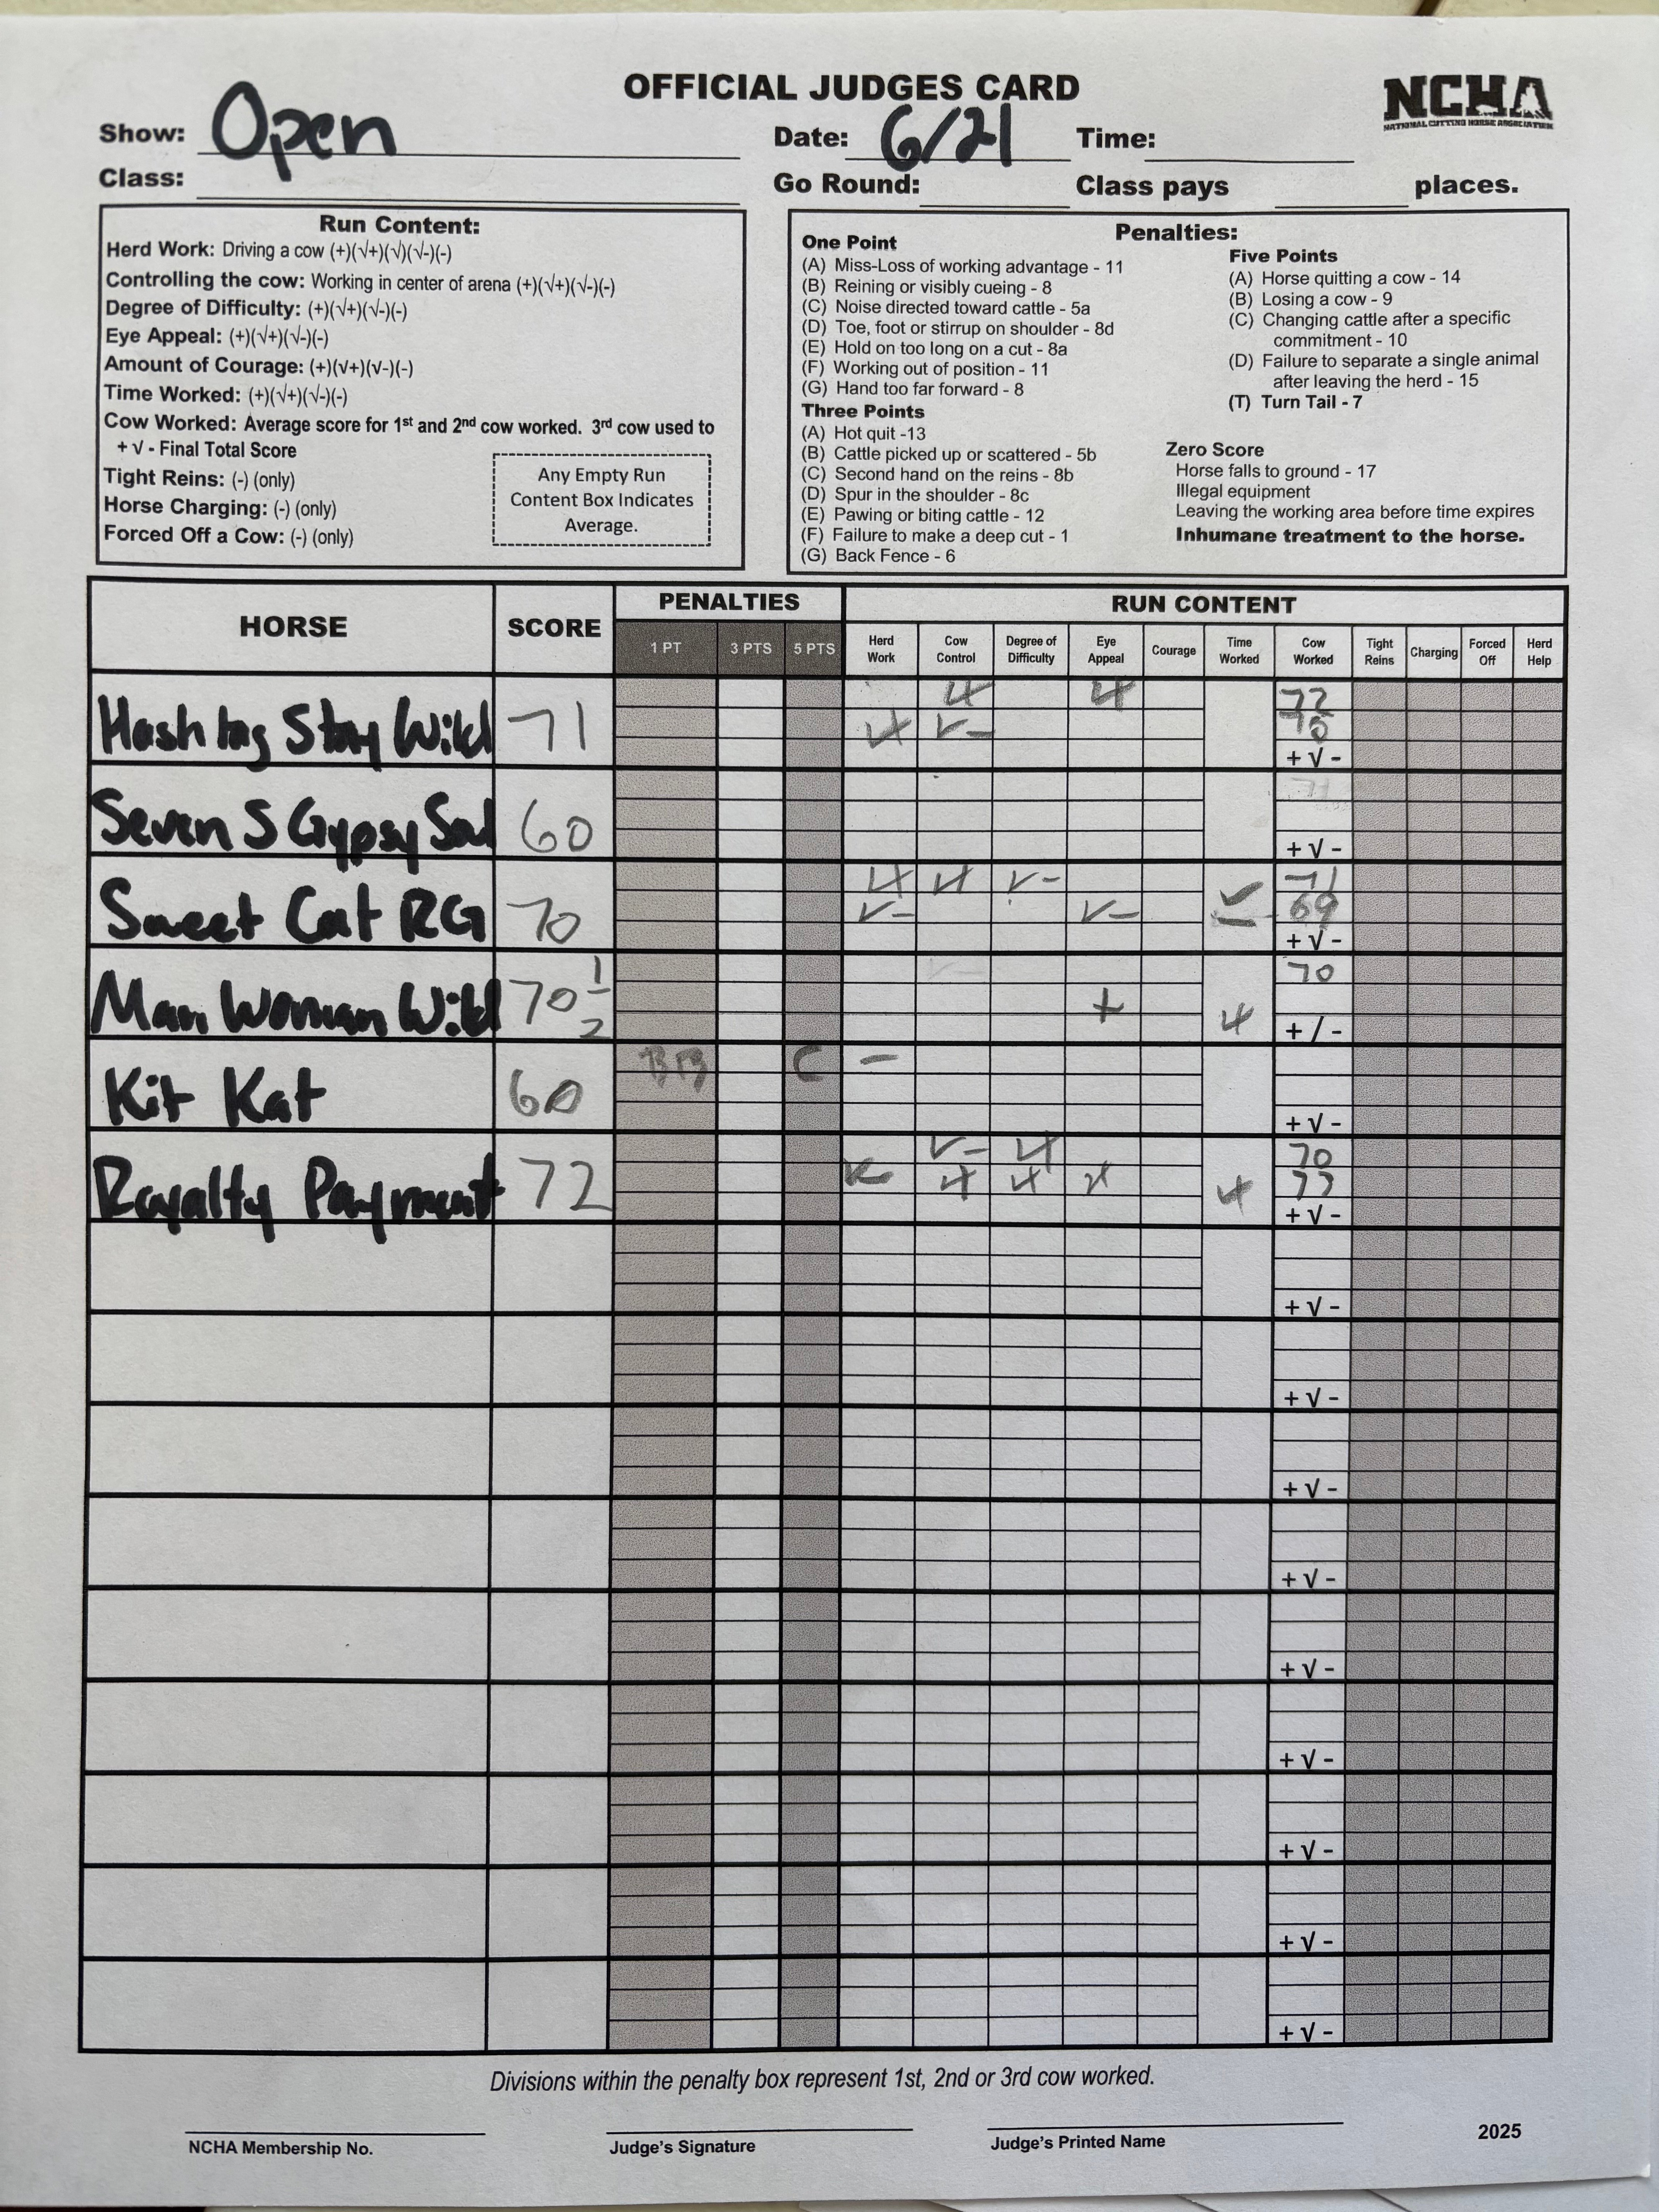 OFFICIAL JUDGES CARD
NCHA
NATIONAL CUTTING HORSE ASSOCIATION
Show: Open
Date: 6/21 Time:
Class:
Go Round: Class pays places.
Run Content:
Herd Work: Driving a cow (+)(√+)(√)(√-)(-)
Controlling the cow: Working in center of arena (+)(√+)(√-)(-)
Degree of Difficulty: (+)(√+)(√-)(-)
Eye Appeal: (+)(√+)(√-)(-)
Amount of Courage: (+)(√+)(√-)(-)
Time Worked: (+)(√+)(√-)(-)
Cow Worked: Average score for 1st and 2nd cow worked. 3rd cow used to
+ √ - Final Total Score
Tight Reins: (-) (only)
Horse Charging: (-) (only)
Forced Off a Cow: (-) (only)
Any Empty Run
Content Box Indicates
Average.
Penalties:
One Point
(A) Miss-Loss of working advantage - 11
(B) Reining or visibly cueing - 8
(C) Noise directed toward cattle - 5a
(D) Toe, foot or stirrup on shoulder - 8d
(E) Hold on too long on a cut - 8a
(F) Working out of position - 11
(G) Hand too far forward - 8
Three Points
(A) Hot quit -13
(B) Cattle picked up or scattered - 5b
(C) Second hand on the reins - 8b
(D) Spur in the shoulder - 8c
(E) Pawing or biting cattle - 12
(F) Failure to make a deep cut - 1
(G) Back Fence - 6
Five Points
(A) Horse quitting a cow - 14
(B) Losing a cow - 9
(C) Changing cattle after a specific
commitment - 10
(D) Failure to separate a single animal
after leaving the herd - 15
(T) Turn Tail - 7
Zero Score
Horse falls to ground - 17
Illegal equipment
Leaving the working area before time expires
Inhumane treatment to the horse.
HORSE SCORE PENALTIES RUN CONTENT
1 PT 3 PTS 5 PTS Herd Work Cow Control Degree of Difficulty Eye Appeal Courage Time Worked Cow Worked Tight Reins Charging Forced Off Herd Help
√+ √+ 72
Hashtag Stay Wild 71 √+ √- 70
+ √ -
71
Seven S Gypsy Sal 60
+ √ -
√+ √+ √- 71
Sweet Cat RG 70 √- √- √- 69
+ √ -
70
Man Woman Wild 70 1/2 + √+
+ / -
BB C -
Kit Kat 60
+ √ -
√- √+ 70
Royalty Payment 72 √- √+ √+ √+ √+ 73
+ √ -
+ √ -
+ √ -
+ √ -
+ √ -
+ √ -
+ √ -
+ √ -
+ √ -
+ √ -
Divisions within the penalty box represent 1st, 2nd or 3rd cow worked.
NCHA Membership No.
Judge's Signature
Judge's Printed Name
2025